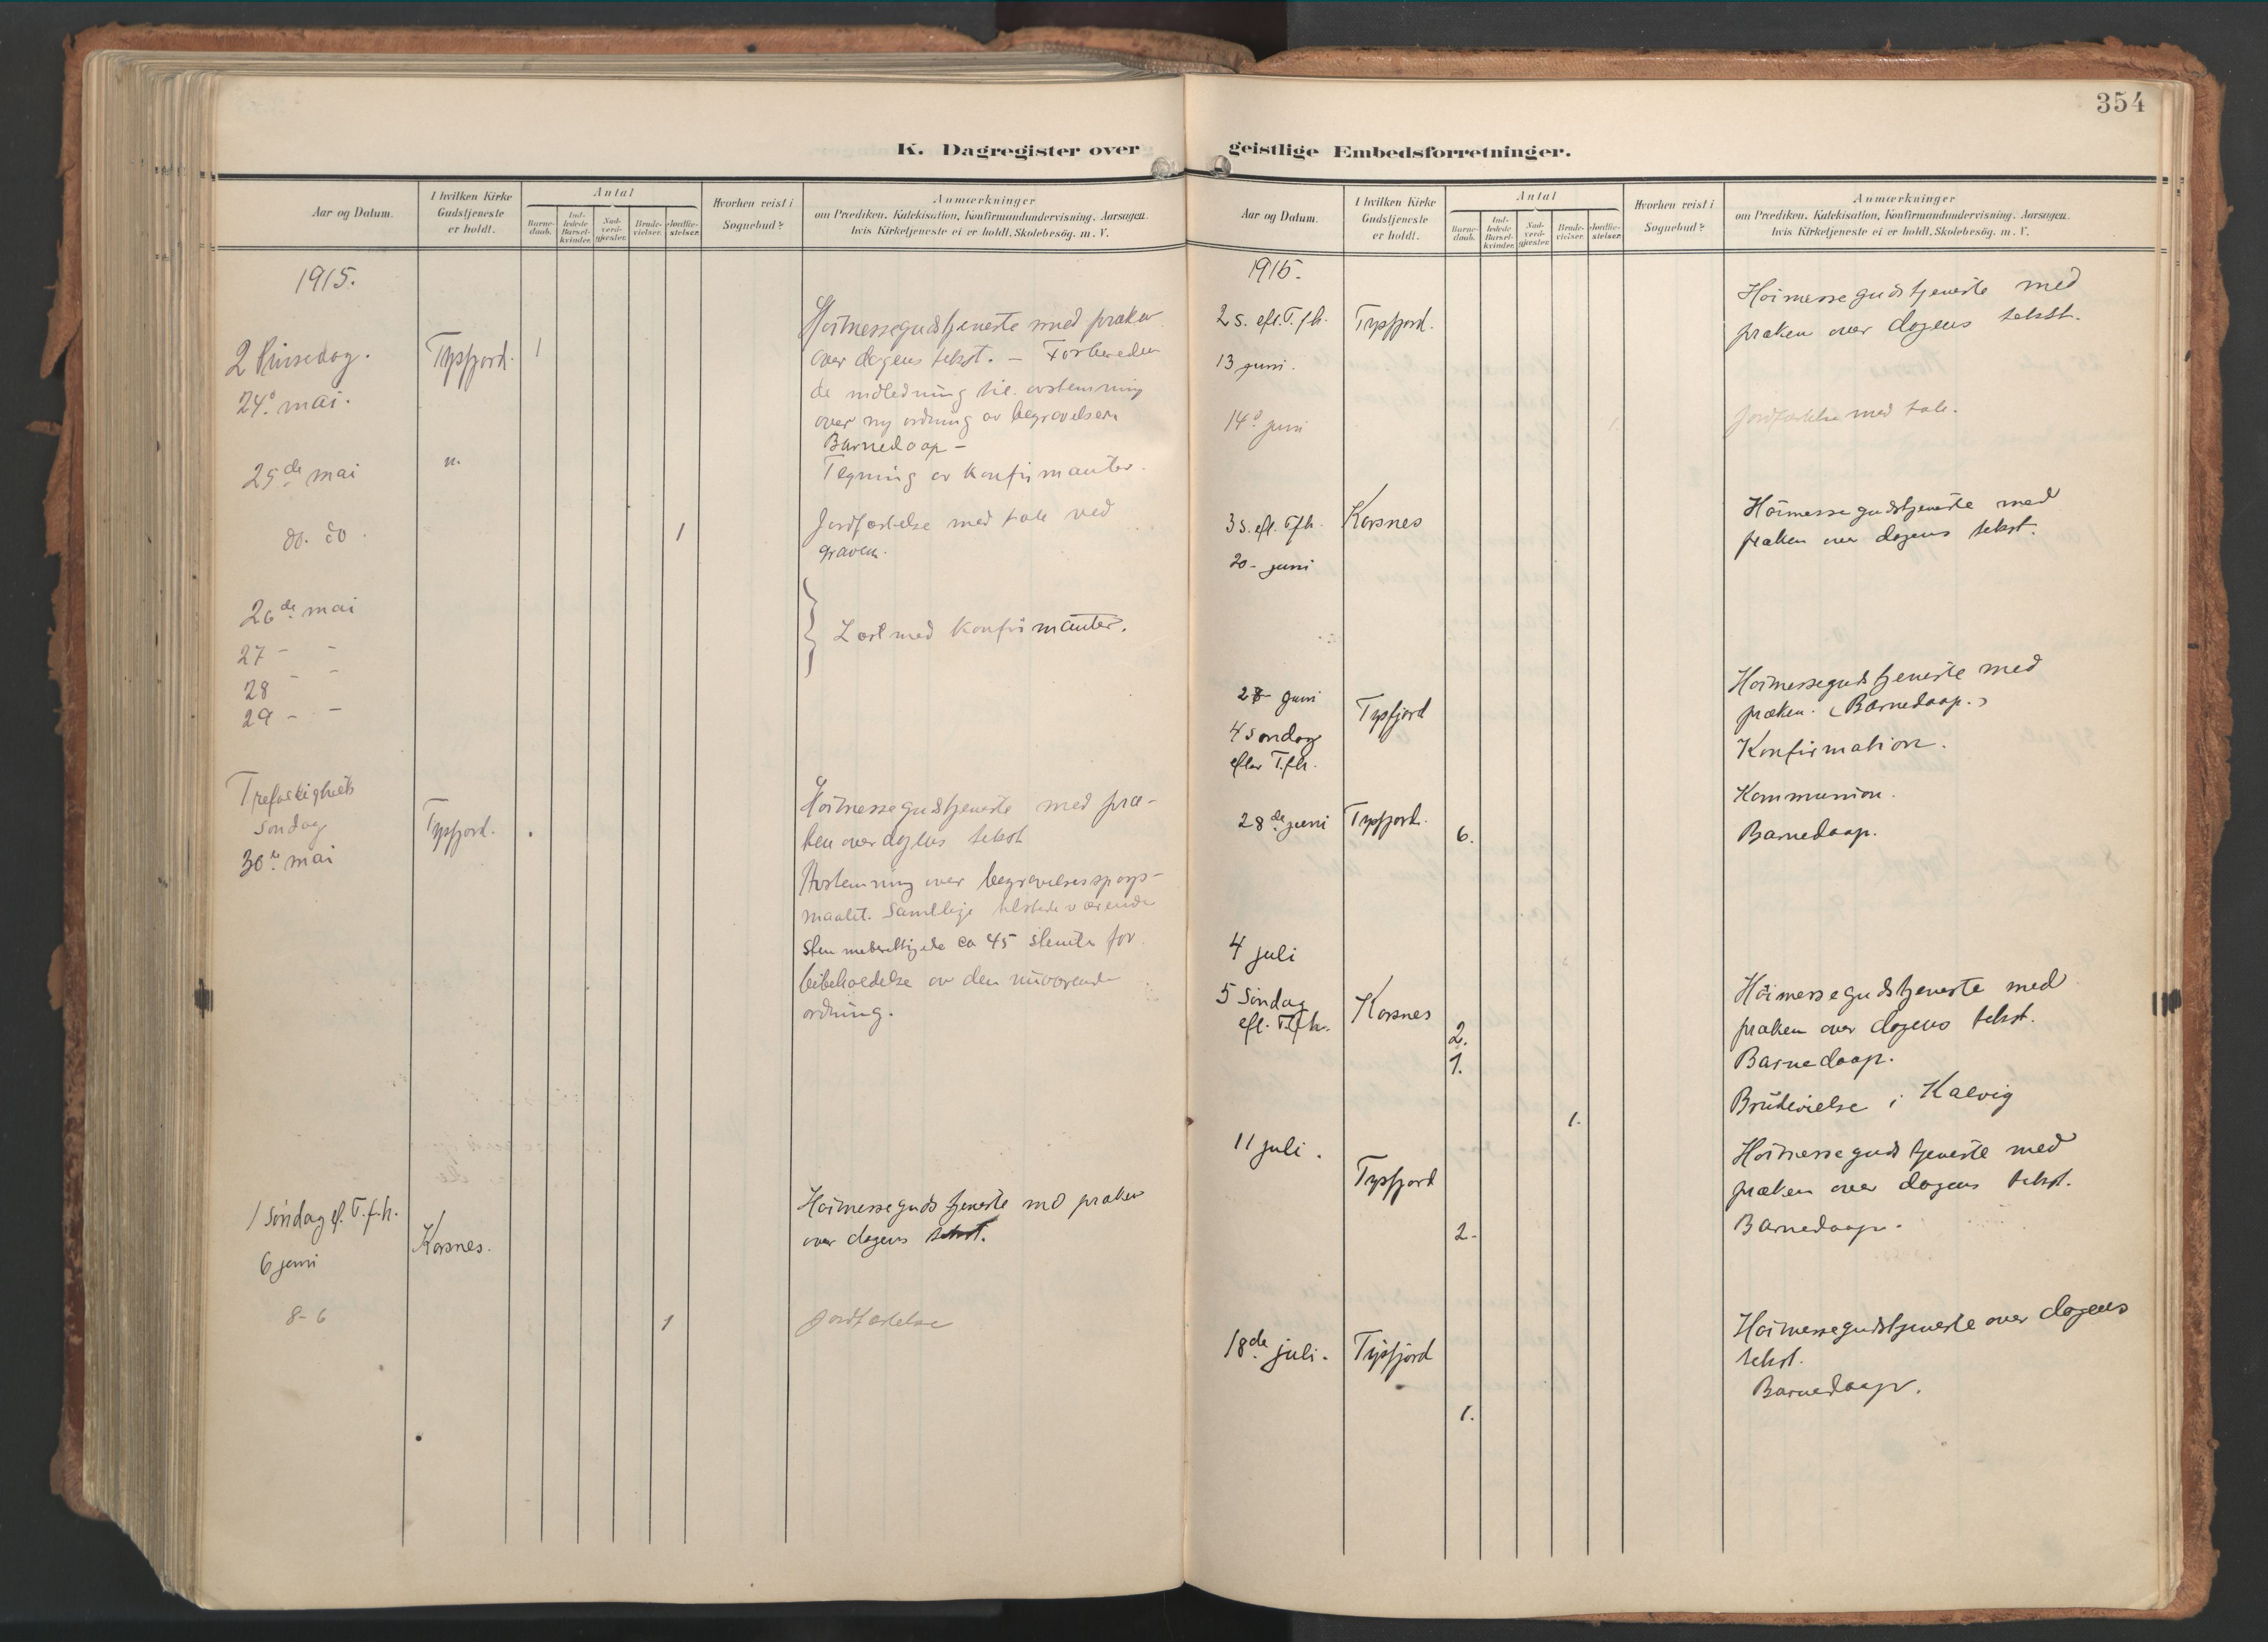 354
K. Dagregister over geistlige Embedsforretninger.
Aar og Datum.
I hvilken Kirke Gudstjeneste er holdt.
Antal
Barne-daab.
Ind-ledede Barsel-kvinder.
Nad-verd-gjester.
Brude-vielser.
Jordfæ-stelser.
Hvorhen reist i Sognebud?
Anmærkninger
om Prædiken, Katekisation, Konfirmandundervisning, Aarsagen,
hvis Kirketjeneste ei er holdt, Skolebesög. m. V.
1915.
2 Pinsedag. Tysfjord. 1
24de mai.
Höimessegudstjeneste med præken
over dagens tekst. – Forbereden
de indledning til avstemning
over ny ordning av begravelsen
Barnedaap –
25de mai " Tegning av konfirmanter.
do. do. 1 Jordfæstelse med tale ved
graven.
26de mai
27 – –
28 – –
29 – –
} Læst med konfirmanter.
Trefoldigheds
söndag Tysfjord.
30te mai
Höimessegudstjeneste med præ-
ken over dagens tekst
Avstemning over begravelsesspørs-
maalet. Samtlige tilstedeværende
stemmeberettigede ca 45 stemte for
bibeholdelse av den nuværende
ordning.
1 Söndag ef. T.f.h. Korsnes.
6 juni
Höimessegudstjeneste md præken
over dagens tekst.
8-6 1 Jordfæstelse
Aar og Datum.
I hvilken Kirke Gudstjeneste er holdt.
Antal
Barne-daab.
Ind-ledede Barsel-kvinder.
Nad-verd-gjester.
Brude-vielser.
Jordfæ-stelser.
Hvorhen reist i Sognebud?
Anmærkninger
om Prædiken, Katekisation, Konfirmandundervisning, Aarsagen,
hvis Kirketjeneste ei er holdt, Skolebesög. m. V.
1915.
2 s. eft. T.f.h. Tysfjord.
13 juni.
Höimessegudstjeneste med
præken over dagens tekst.
14de juni 1. Jordfæstelse med tale.
3 s. eft. Tfh. Korsnes
20 – juni
Höimessegudstjeneste med
præken over dagens tekst.
27 – juni Tysfjord
4 söndag
efter T.f.h.
Höimessegudstjeneste med
præken. (Barnedaap.)
Konfirmation.
Kommunion.
28de juni Tysfjord. 6. Barnedaap.
4 juli
5 Söndag Korsnes
eft. T.f.h.
Höimessegudstjeneste med
præken over dagens tekst.
2.
1. Barnedaap.
1. Brudevielse i Kalvig
11 juli. Tysfjord
Höimessegudstjeneste med
præken over dagens tekst.
2. Barnedaap.
18de juli. Tysfjord
Höimessegudstjeneste over dagens
tekst.
1. Barnedaap.